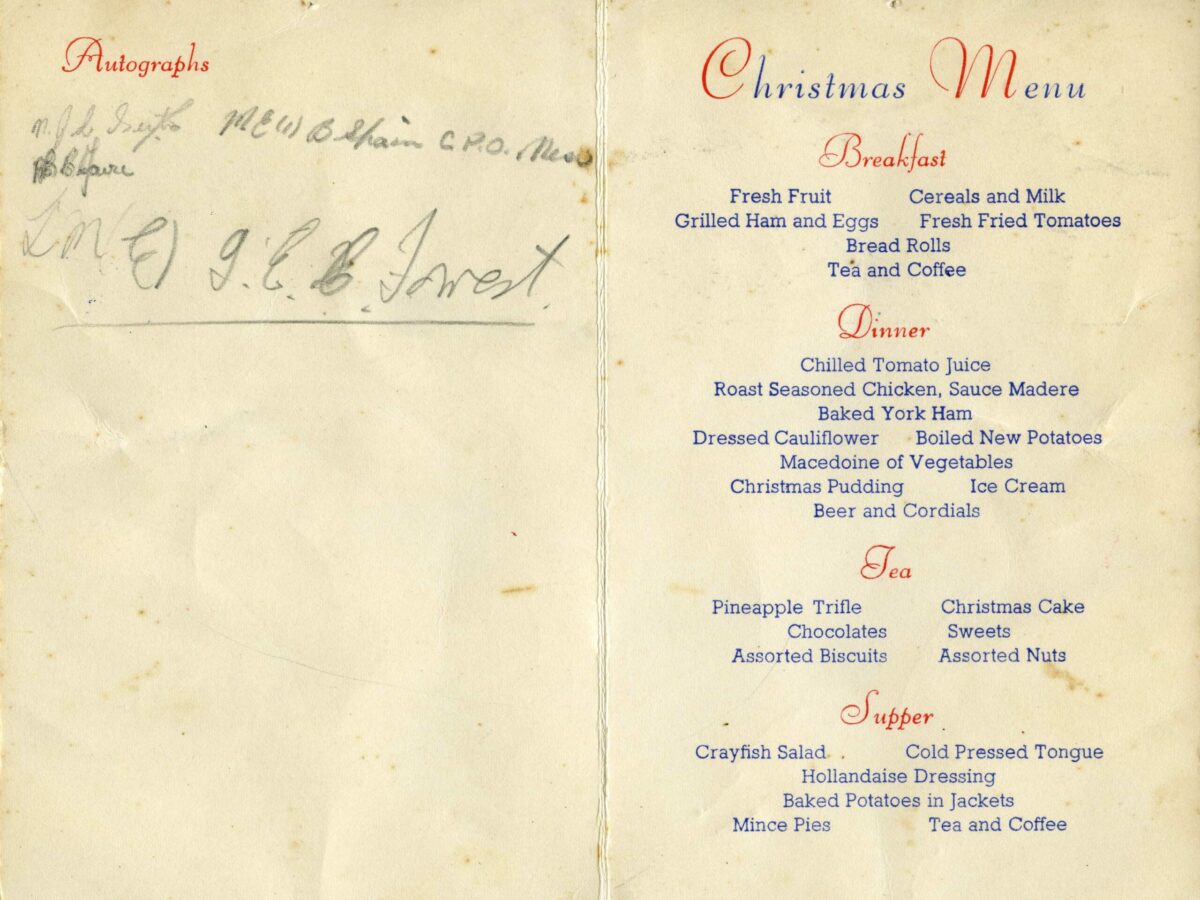 Autographs
M E (1) B Spain C.P.O. Mess
L M (E) G. E. B. Forrest.
Christmas Menu
Breakfast
Fresh Fruit Cereals and Milk
Grilled Ham and Eggs Fresh Fried Tomatoes
Bread Rolls
Tea and Coffee
Dinner
Chilled Tomato Juice
Roast Seasoned Chicken, Sauce Madere
Baked York Ham
Dressed Cauliflower Boiled New Potatoes
Macedoine of Vegetables
Christmas Pudding Ice Cream
Beer and Cordials
Tea
Pineapple Trifle Christmas Cake
Chocolates Sweets
Assorted Biscuits Assorted Nuts
Supper
Crayfish Salad Cold Pressed Tongue
Hollandaise Dressing
Baked Potatoes in Jackets
Mince Pies Tea and Coffee